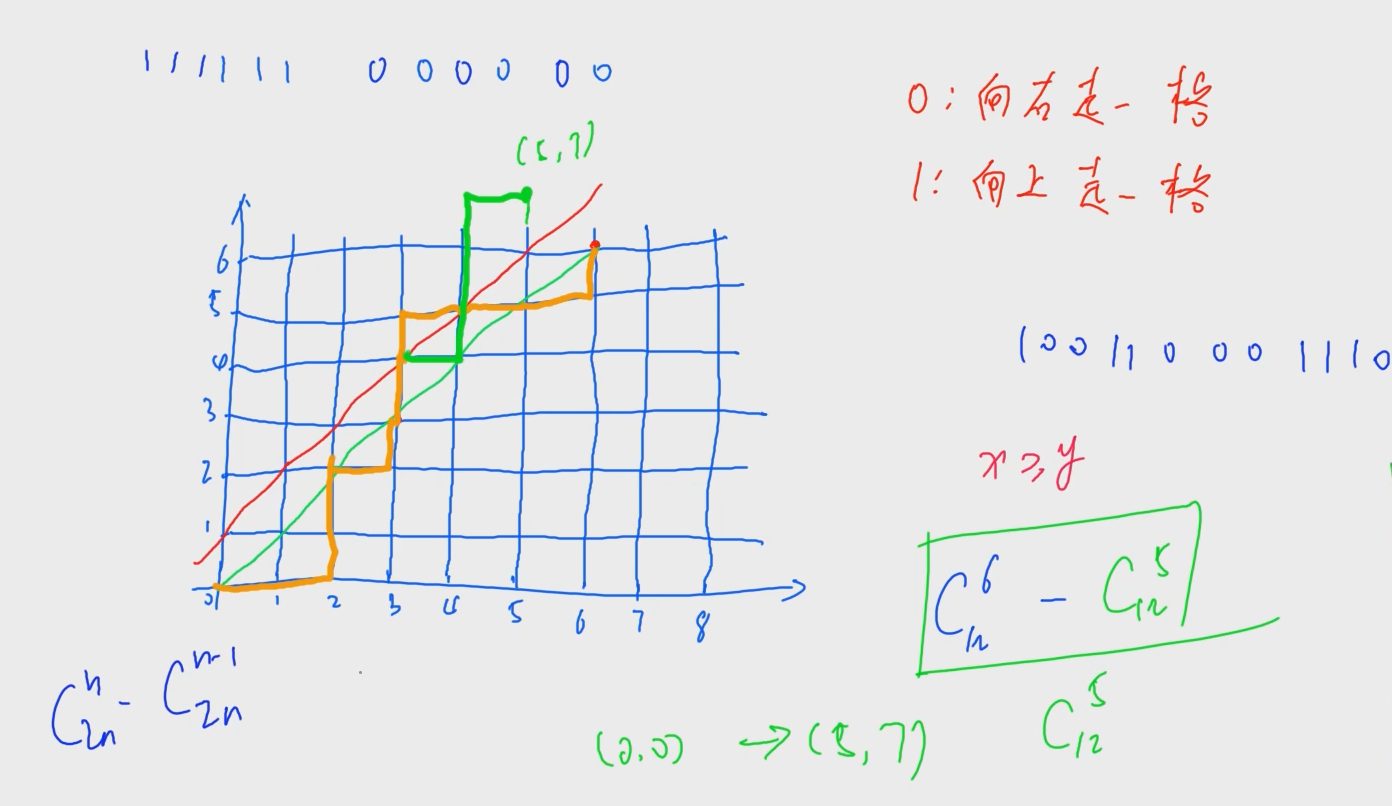 1 1 1 1 1 1 0 0 0 0 0 0
0：向右走一格
1：向上走一格
(5,7)
6
5
4
3
2
1
0 1 2 3 4 5 6 7 8
1 0 0 1 1 0 0 0 1 1 1 0
x ≥ y
C₁₂⁶ - C₁₂⁵
C₂ₙⁿ - C₂ₙⁿ⁻¹
(0,0) → (5,7) C₁₂⁵